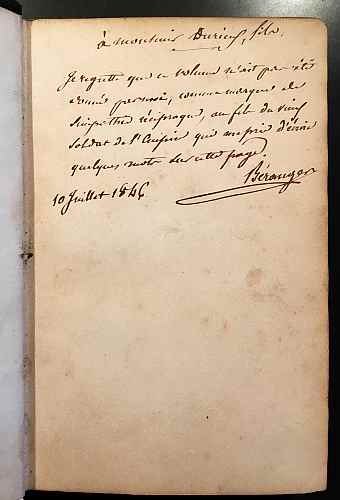 à monsieur Durieu, fils.
Je regrette que ce volume n'ait pas été
donné par moi, comme marque de
simpathie réciproque, au fils du vieux
soldat de l'Empire qui me prie d'écrire
quelques mots sur cette page.
Béranger
10 Juillet 1846